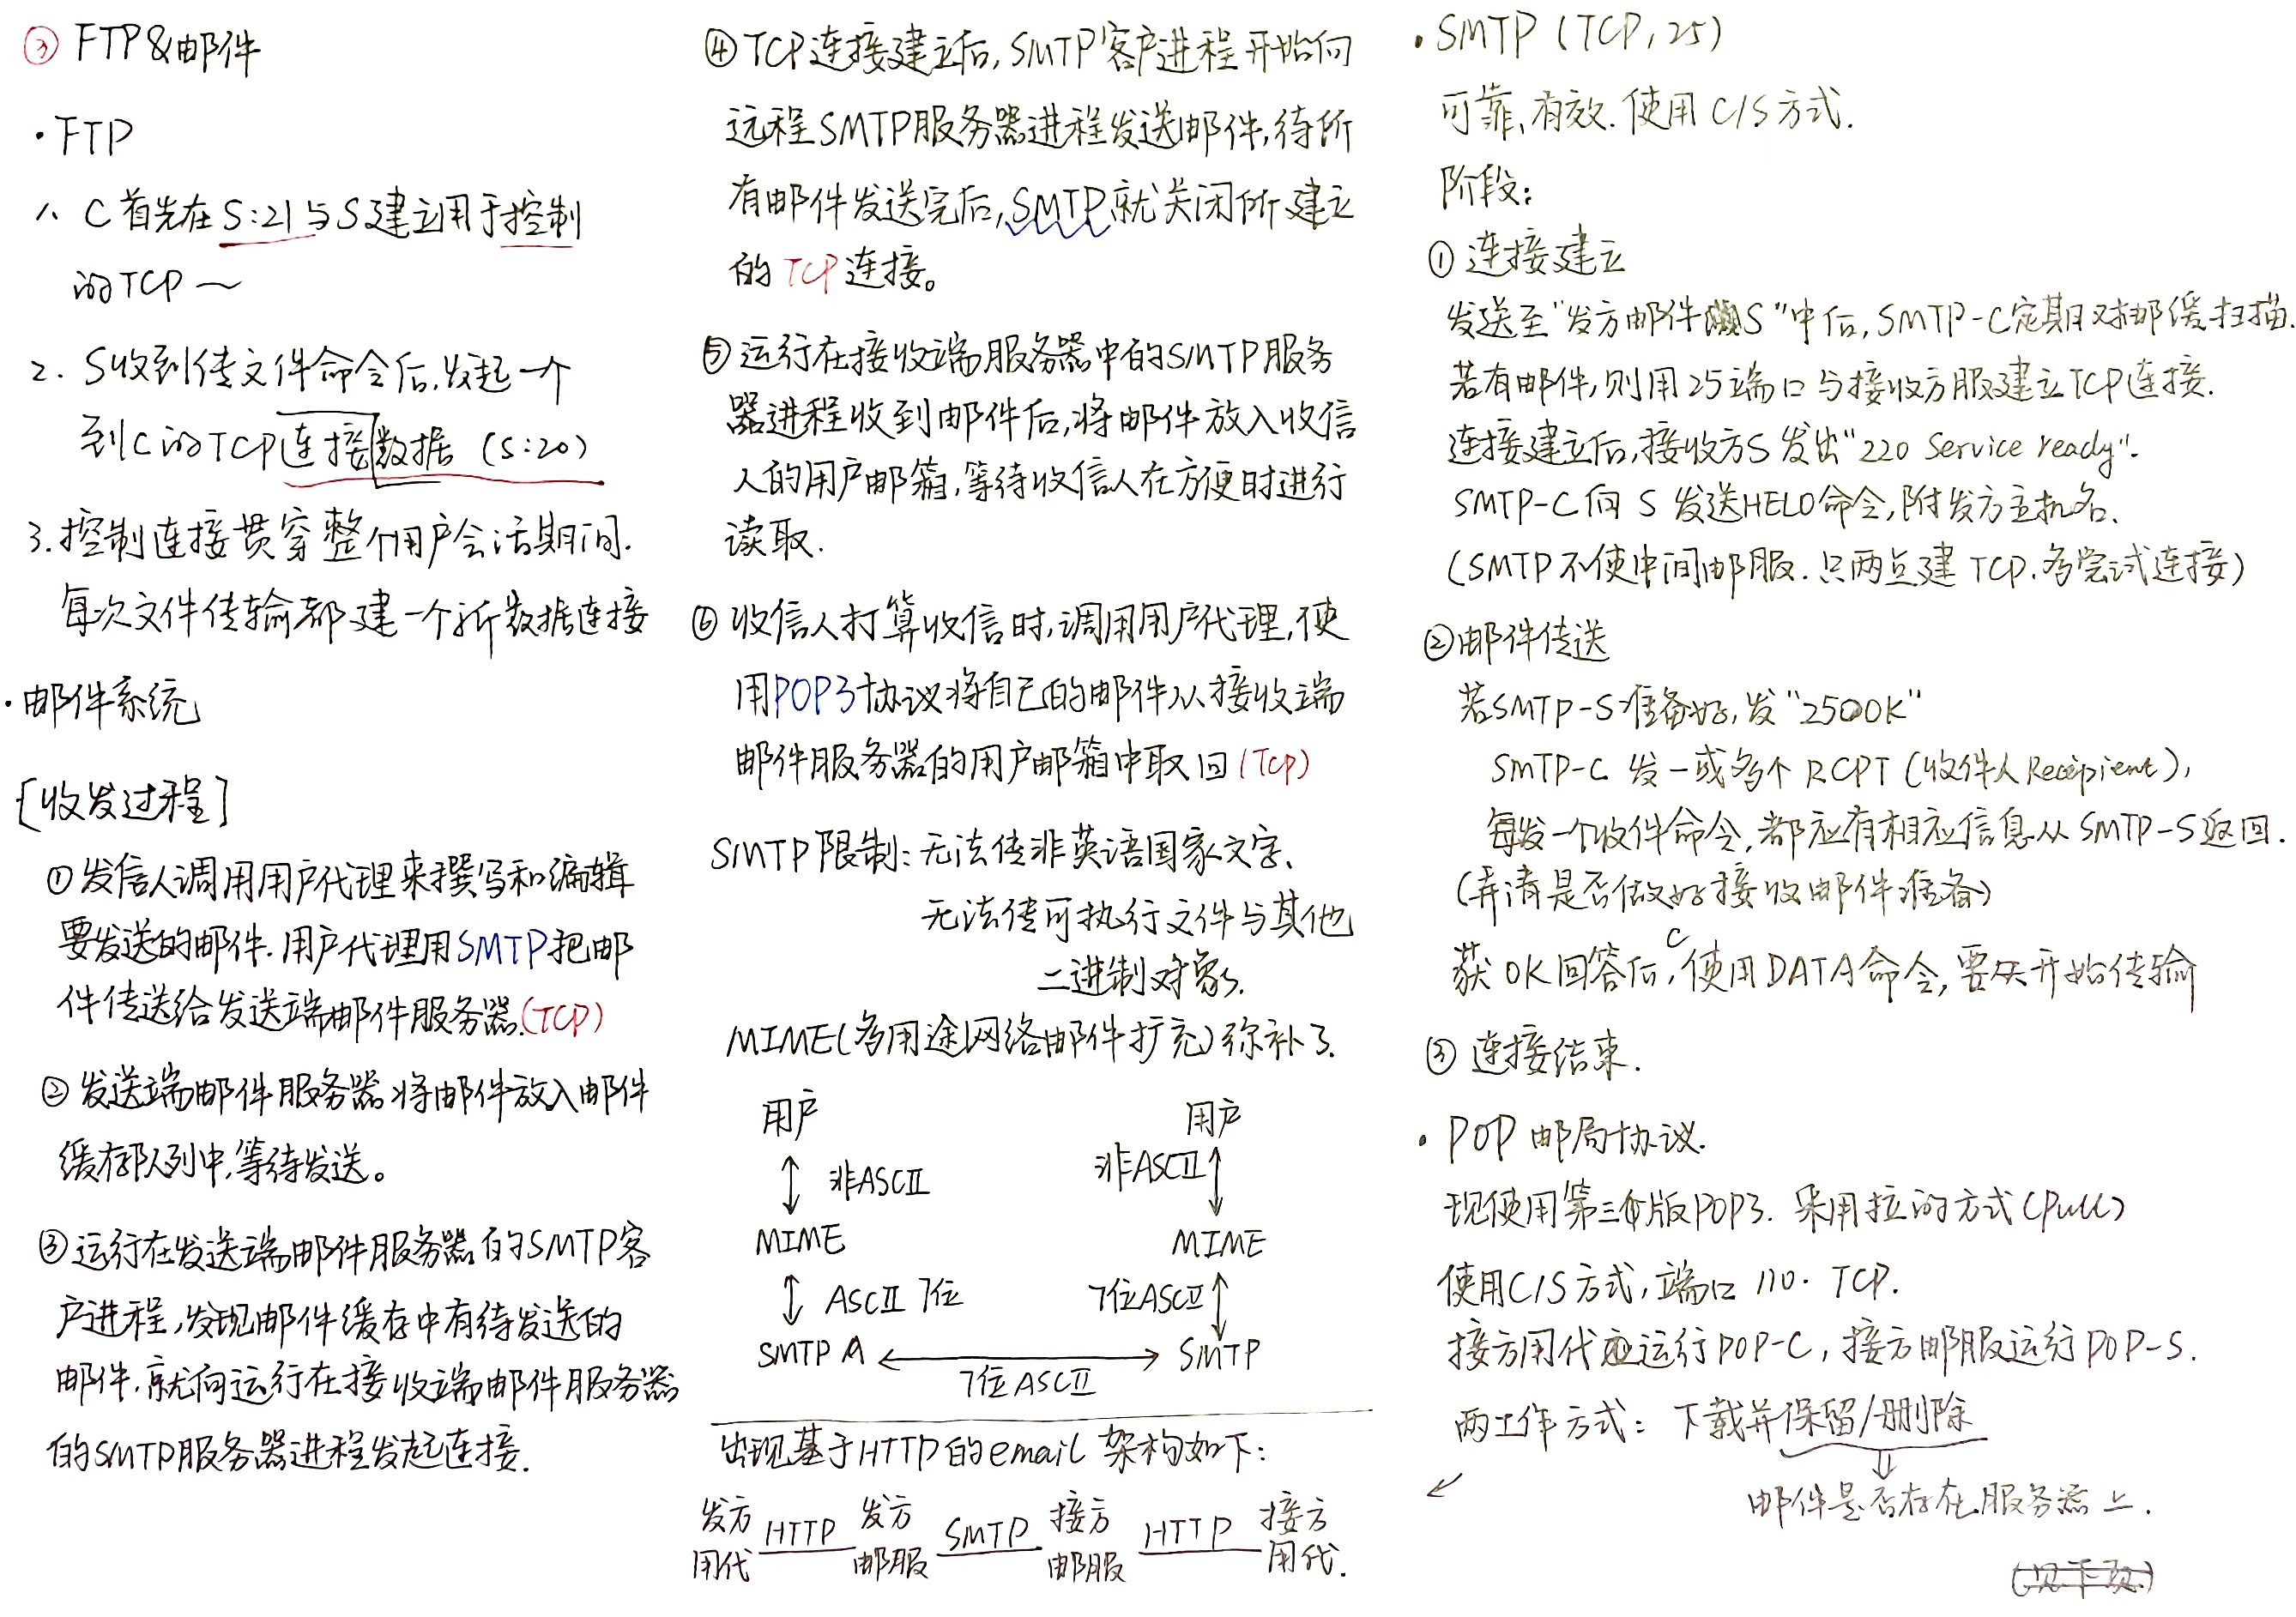 ③ FTP&邮件
·FTP
1、C首先在S:21与S建立用于控制
的TCP～
2. S收到传文件命令后,发起一个
到C的TCP连接数据 (S:20)
3.控制连接贯穿整个用户会话期间.
每次文件传输都建一个新数据连接
·邮件系统
[收发过程]
①发信人调用用户代理来撰写和编辑
要发送的邮件.用户代理用SMTP把邮
件传送给发送端邮件服务器.(TCP)
②发送端邮件服务器将邮件放入邮件
缓存队列中,等待发送。
③运行在发送端邮件服务器的SMTP客
户进程,发现邮件缓存中有待发送的
邮件,就向运行在接收端邮件服务器
的SMTP服务器进程发起连接.
④TCP连接建立后,SMTP客户进程开始向
远程SMTP服务器进程发送邮件,待所
有邮件发送完后,SMTP就关闭所建立
的TCP连接。
⑤运行在接收端服务器中的SMTP服务
器进程收到邮件后,将邮件放入收信
人的用户邮箱,等待收信人在方便时进行
读取.
⑥收信人打算收信时,调用用户代理,使
用POP3协议将自己的邮件从接收端
邮件服务器的用户邮箱中取回(TCP)
SMTP限制:无法传非英语国家文字、
无法传可执行文件与其他
二进制对象.
MIME(多用途网络邮件扩充)弥补了.
用户 用户
非ASCII 非ASCII
MIME MIME
ASCII 7位 7位ASCII
SMTP SMTP
7位ASCII
出现基于HTTP的email 架构如下:
发方 HTTP 发方 SMTP 接方 HTTP 接方
用代 邮服 邮服 用代.
·SMTP (TCP,25)
可靠、有效.使用C/S方式.
阶段:
①连接建立
发送至"发方邮件S"中后,SMTP-C定期对邮缓扫描.
若有邮件,则用25端口与接收方服建立TCP连接.
连接建立后,接收方S发出"220 Service ready".
SMTP-C向S发送HELO命令,附发方主机名.
(SMTP不使中间邮服.只两点建TCP.多尝试连接)
②邮件传送
若SMTP-S准备好,发"250OK"
SMTP-C发一或多个RCPT(收件人Recipient),
每发一个收件命令,都应有相应信息从SMTP-S返回.
(弄清是否做好接收邮件准备)
获OK回答后,C使用DATA命令,要开始传输
③连接结束.
·POP邮局协议.
现使用第三版POP3. 采用拉的方式(Pull)
使用C/S方式,端口110. TCP.
接方用代运行POP-C,接方邮服运行POP-S.
两工作方式: 下载并保留/删除
邮件是否存在服务器上.
(见下页)